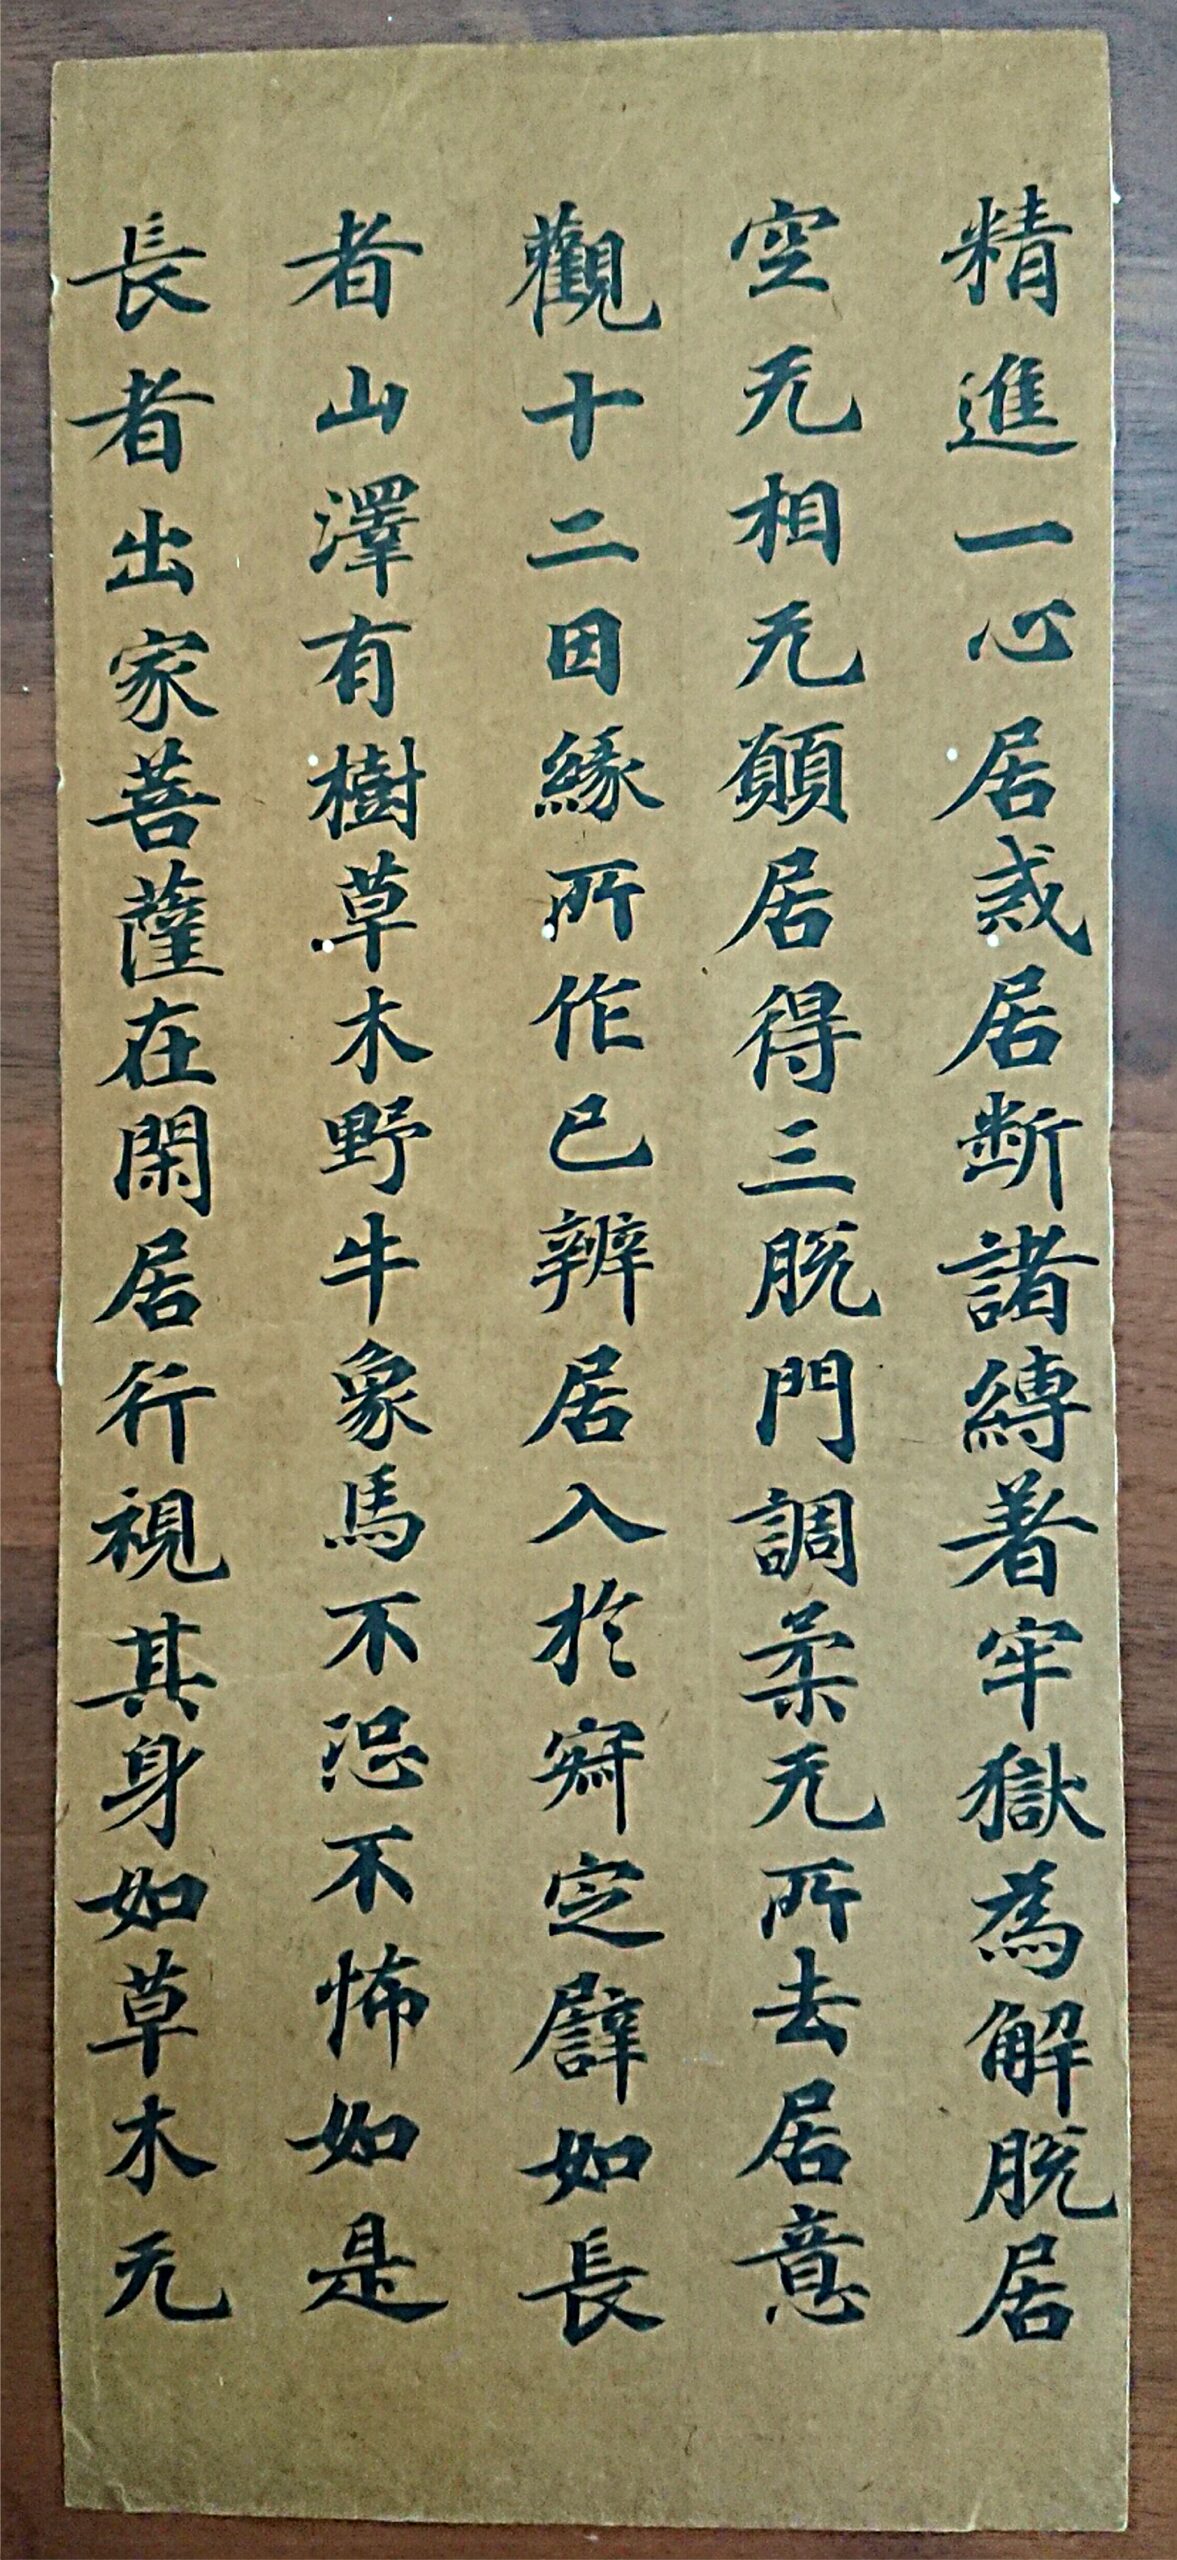 精進一心居戒居斷諸縛著牢獄為解脫居
空无相无願居得三脫門調柔无所去居意
觀十二因緣所作已辨居入於寂定譬如長
者山澤有樹草木野牛象馬不恐不怖如是
長者出家菩薩在閑居行視其身如草木无